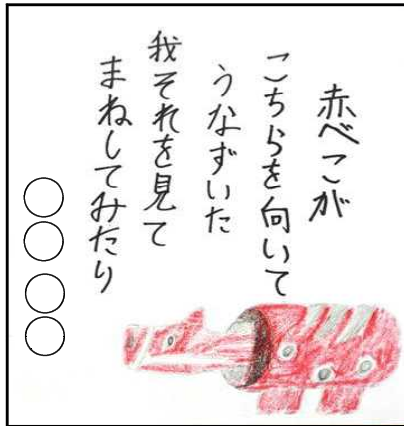 赤べこが
こちらを向いて
うなずいた
我それを見て
まねしてみたり
○○○○